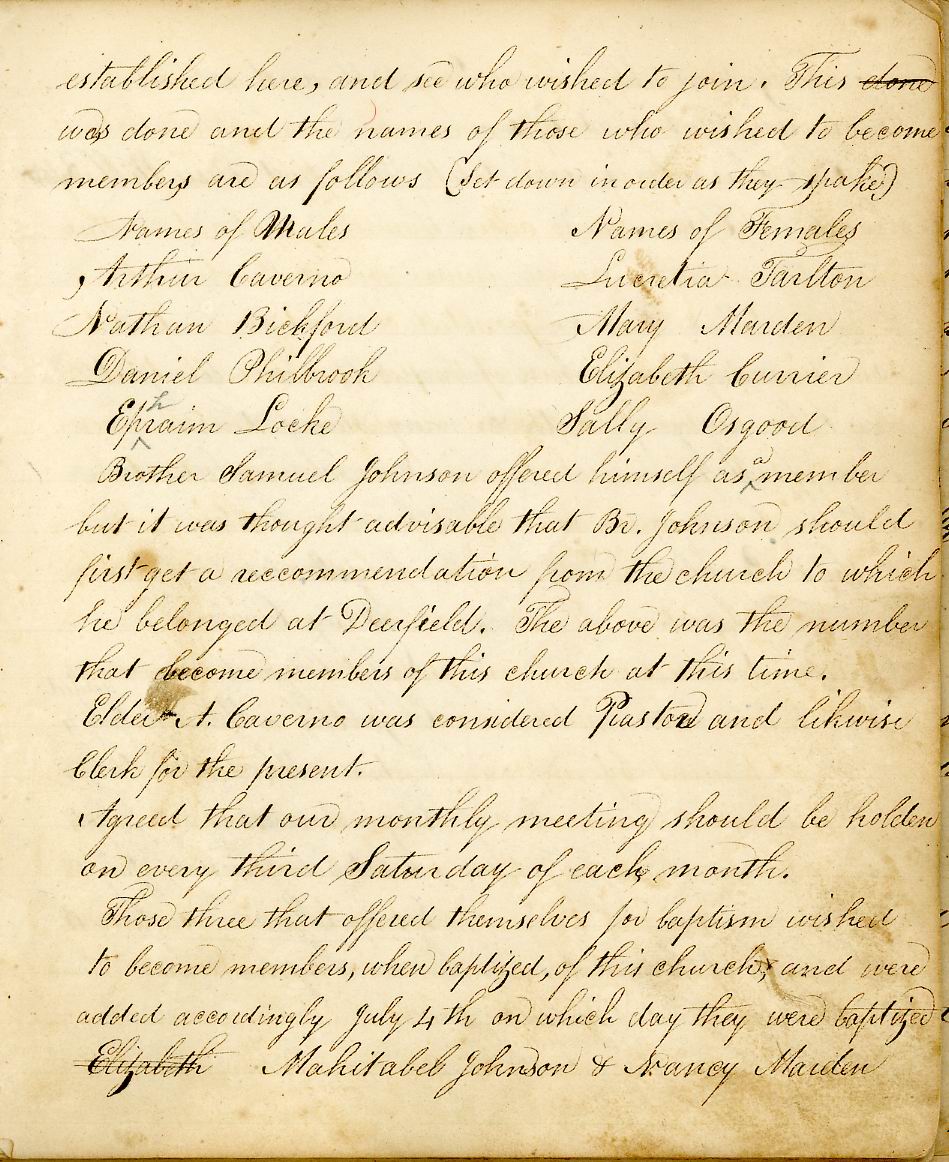 established here, and see who wished to join. This done
was done and the names of those who wished to become
members are as follows (Set down in order as they spake)
Names of Males Names of Females
Arthur Caverno Lucretia Tarlton
Nathan Bickford Mary Marden
Daniel Philbrook Elizabeth Currier
Ephraim Locke Sally Osgood
Brother Samuel Johnson offered himself as a member
but it was thought advisable that Br. Johnson should
first get a reccommendation from the church to which
he belonged at Deerfield. The above was the number
that become members of this church at this time.
Elder A. Caverno was considered Pastor and likwise
Clerk for the present.
Agreed that our monthly meeting should be holden
on every third Saturday of each month.
Those three that offered themselves for baptism wished
to become members, when baptized, of this church, and were
added accordingly July 4th on which day they were baptized
Elizabeth Mahitabel Johnson & Nancy Marden